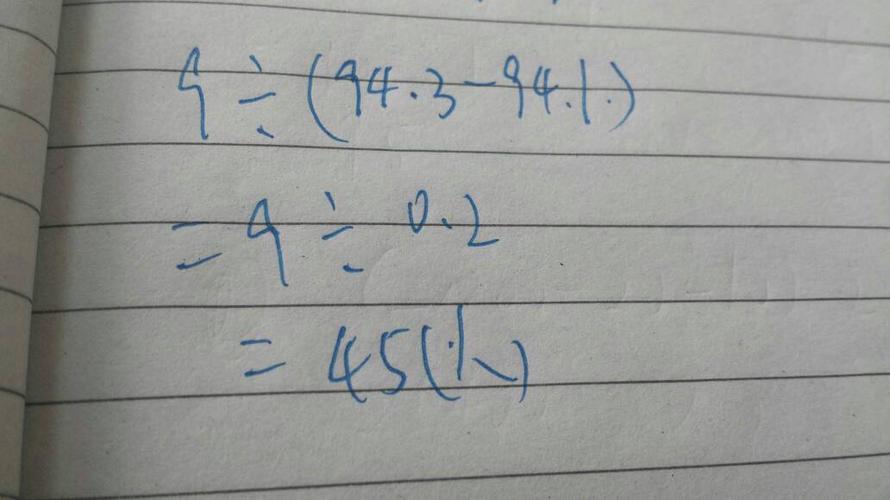 9÷(94.3-94.1.)
=9÷0.2
=45(人)